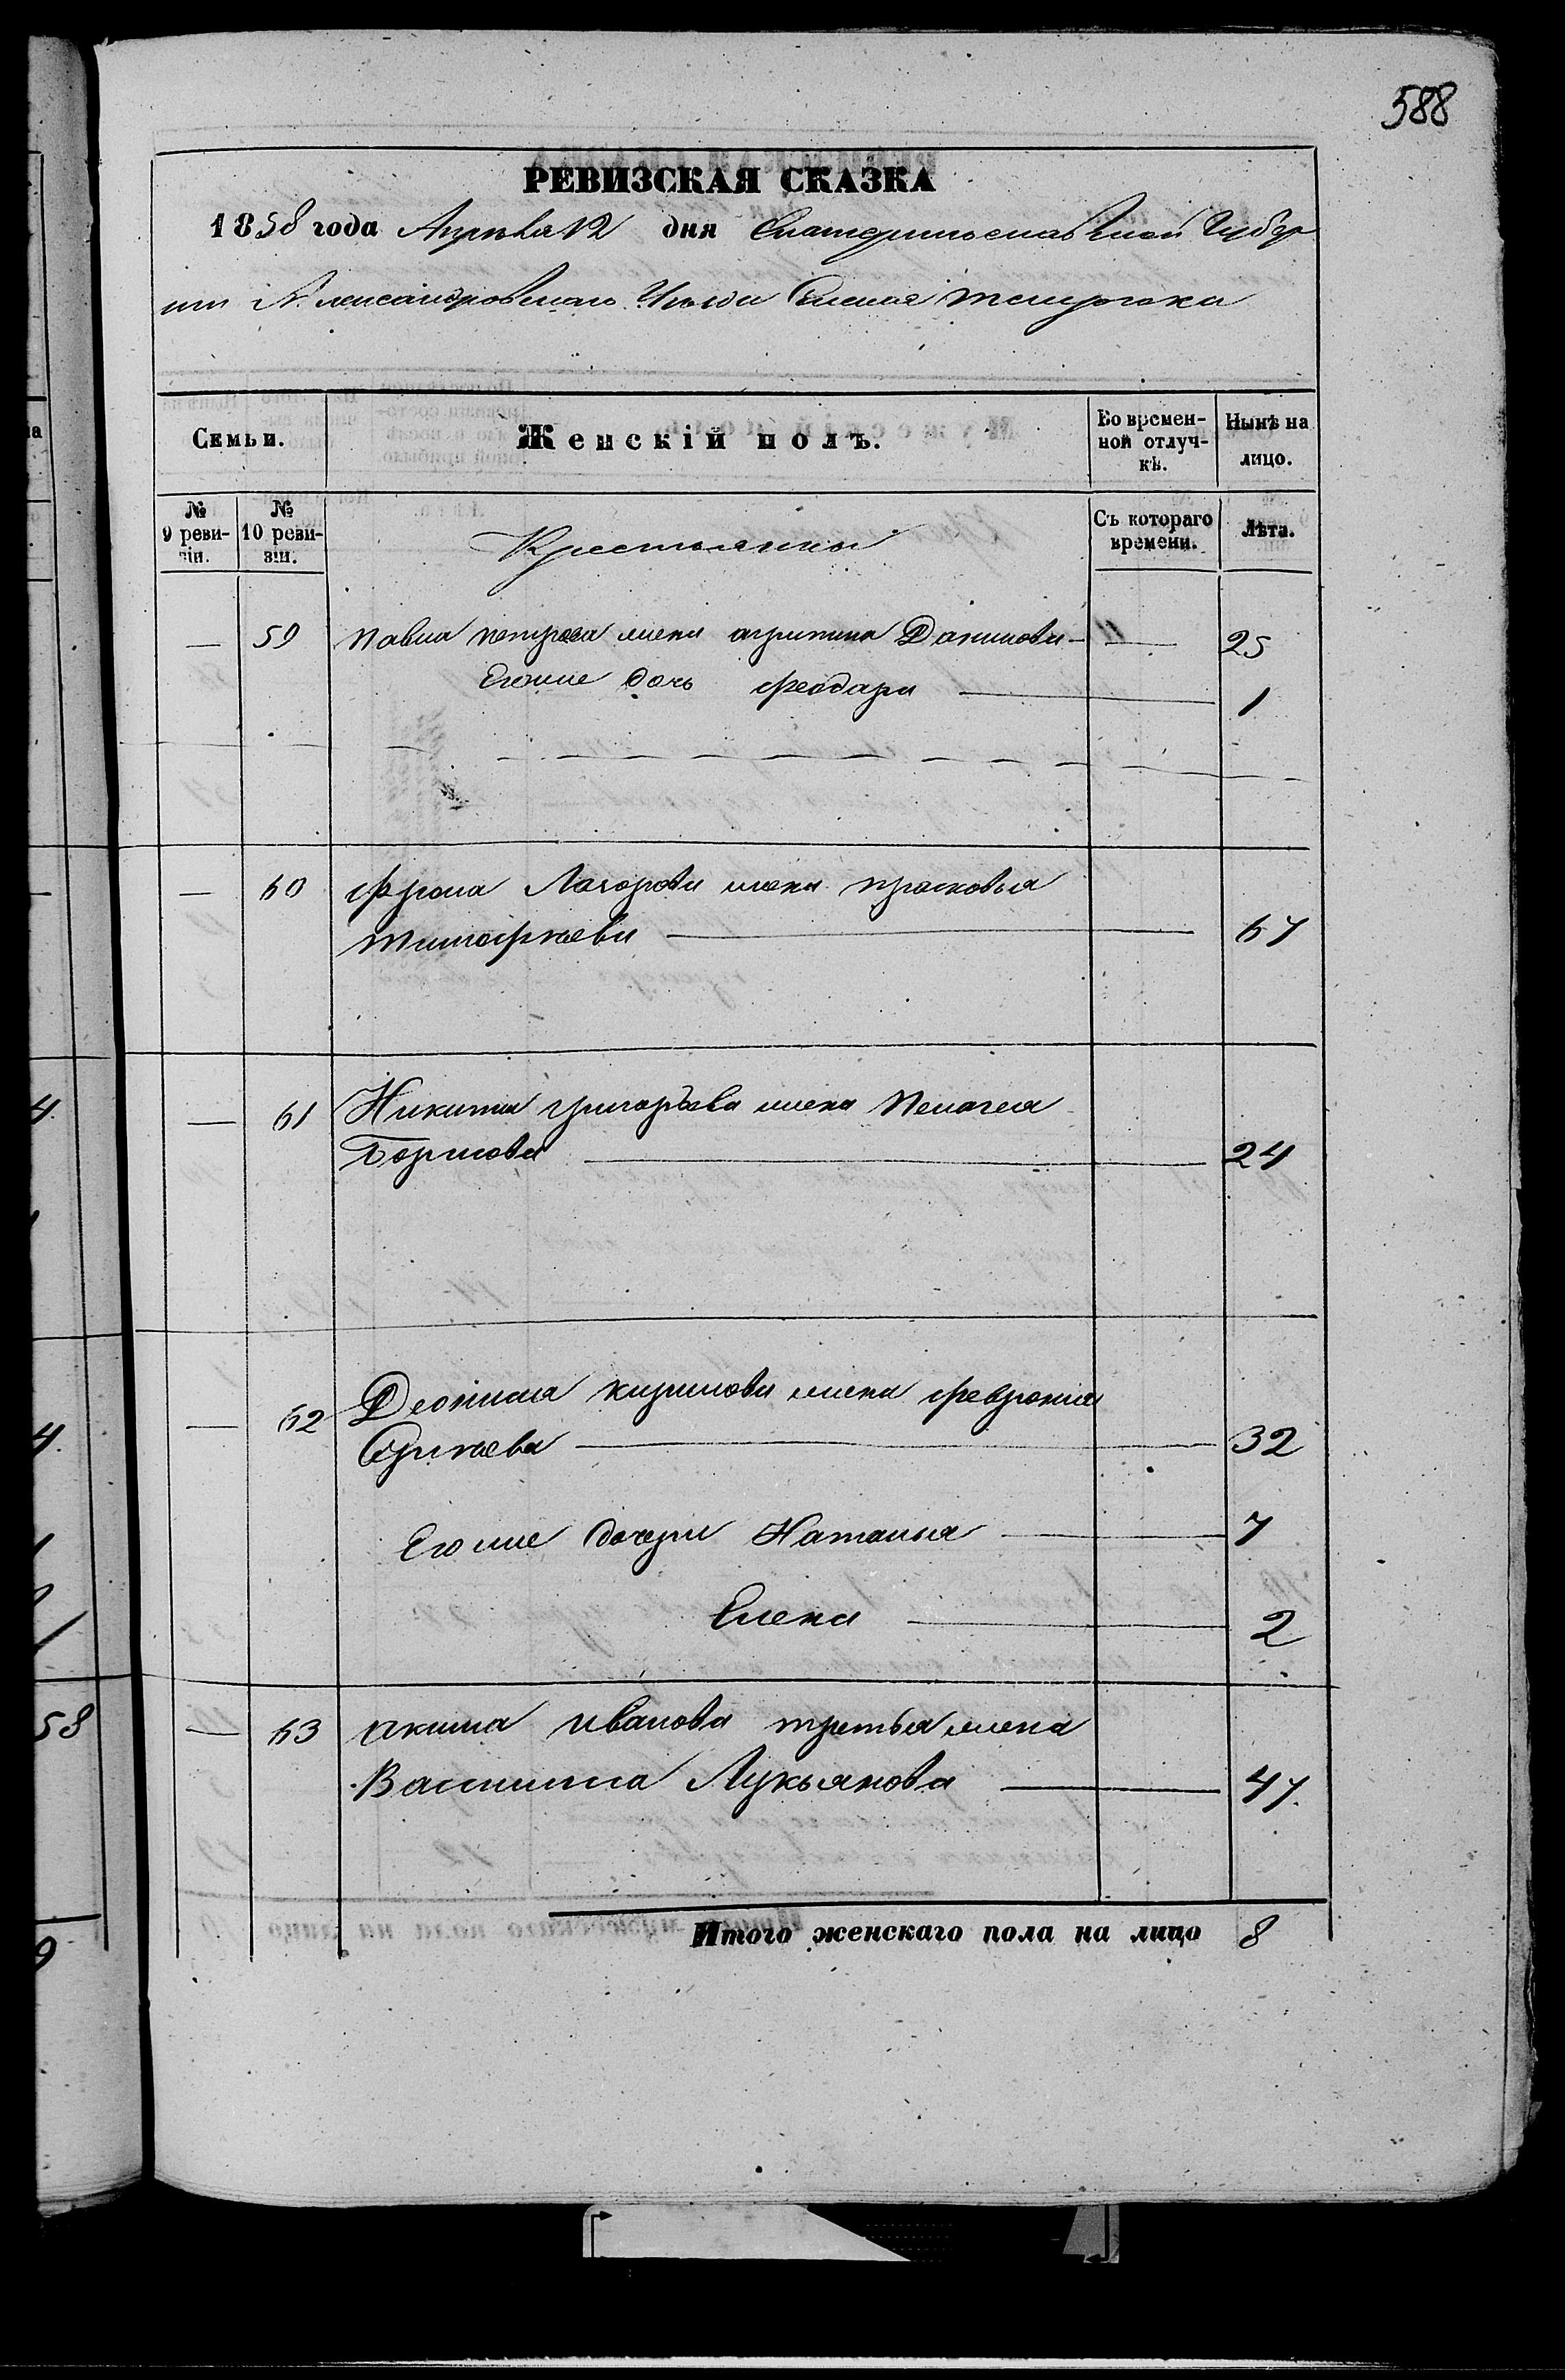 588
РЕВИЗСКАЯ СКАЗКА
1858 года Апреля 12 дня Екатеринославской Губер
нии Александровского Уезда Селения
Семьи. Женскій полъ. Во времен-ной отлуч-кѣ. Нынѣ на лицо.
№ 9 реви-зіи. № 10 реви-зіи. Крестьянны Съ котораго времени. Лѣта.
— 59 Павла петрова жена агрипина Данилова — 25
Егоже дочь феодара — 1
— 60 фрола жена прасковья
тимофеева — 67
— 61 Никиты григорьева жена Пелагея
Борисова — 24
— 62 кирилова жена феврония
— 32
Егоже дочери Наталья — 7
Елена — 2
— 63 якима иванова третья жена
Василиса Лукьянова — 47.
Итого женскаго пола на лицо 8